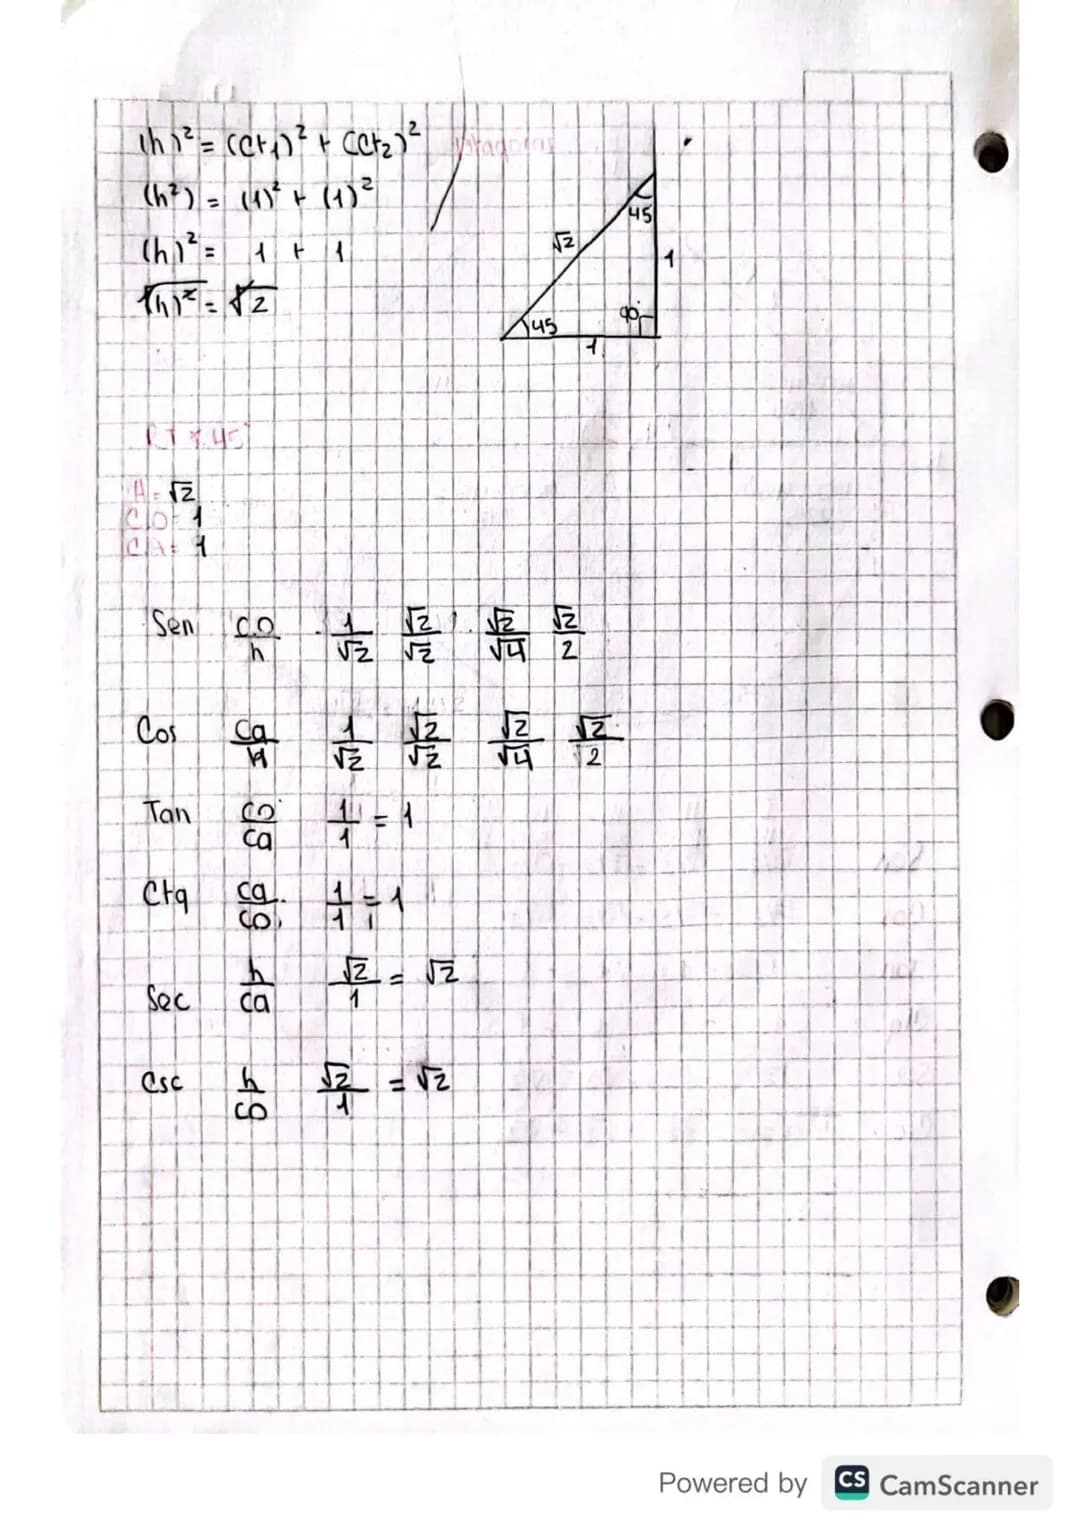 (h)² = (Ct₁)² + (Ct₂)² pitagoras
(h²) = (1)² + (1)²
(h)² = 1 + 1
√(h)² = √2
45
√2
1
90°
45
1
RT ∢ 45°
H = √2
C.O = 1
CA = 1
Sen co/h 1/√2 √2/√2 √2/√4 √2/2
Cos ca/H 1/√2 √2/√2 √2/√4 √2/2
Tan co/ca 1/1 = 1
Ctg ca/co 1/1 = 1
Sec h/ca √2/1 = √2
Csc h/co √2/1 = √2
Powered by CS CamScanner